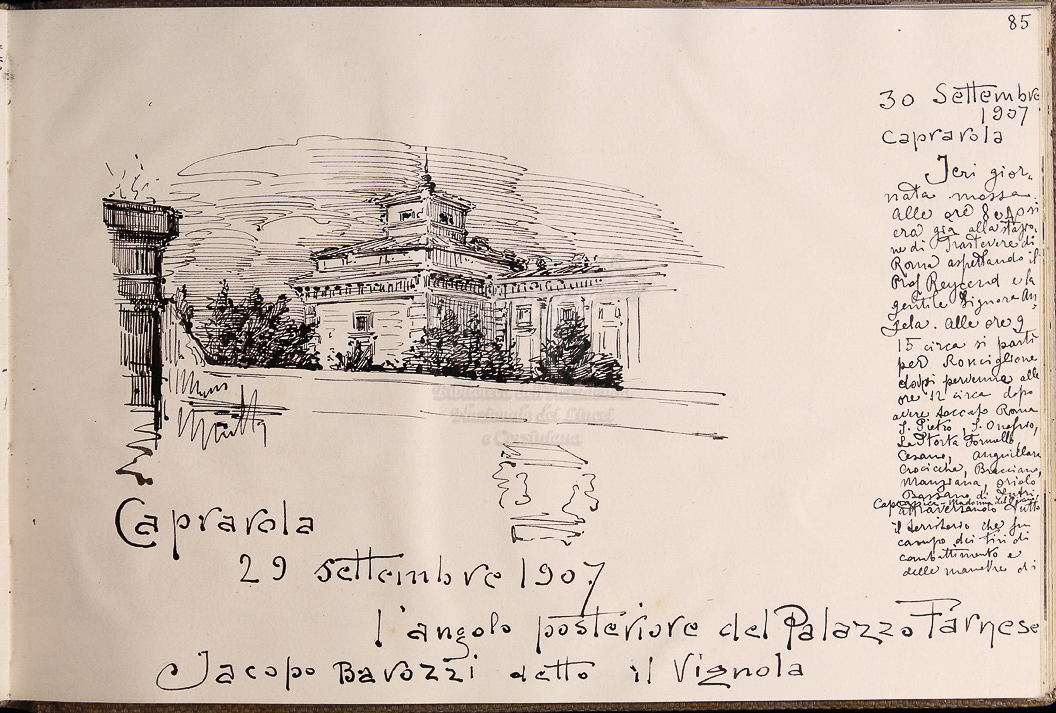 85
30 Settembre
1907
Caprarola
Jeri gior-
nata mossa
alle ore 8 e
era già alla stazio-
ne di Trastevere di
Roma aspettando il
Prof Reycend e la
gentile Signora An-
gela. Alle ore 9
15 circa si partì
per Ronciglione
dopo si pervenne alle
ore 12 circa dopo
avere toccato Roma
S. Pietro, S. Onofrio,
La Storta Formello
Cesano, Anguillara
Crocicchie, Bracciano,
Manziana, Oriolo
Bassano di Sutri
Capranica
attraversando tutto
il territorio che fu
campo dei tiri di
combattimento e
delle manovre di
Biblioteca
Nazionale dei Lincei
e Corsiniana
Caprarola
29 settembre 1907
l'angolo posteriore del Palazzo Farnese
Jacopo Barozzi detto il Vignola